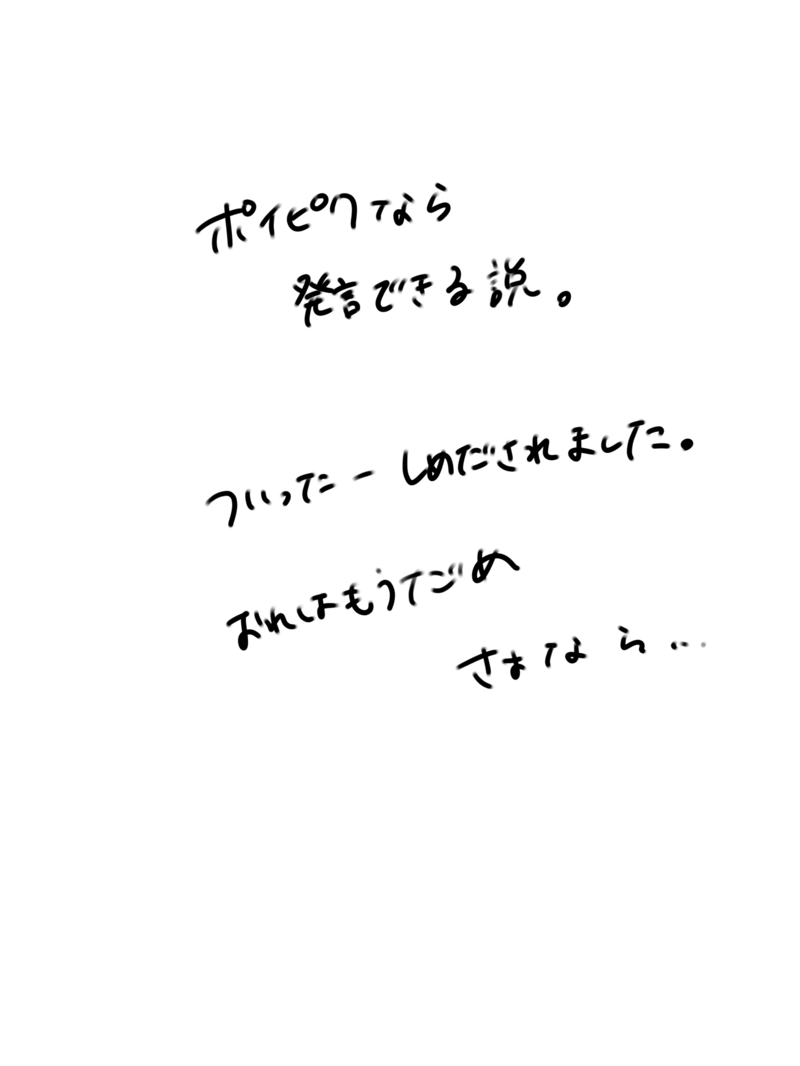 ポイピクなら
発言できる説。
ついったーしめだされました。
おれはもうてごめ
さまなら…